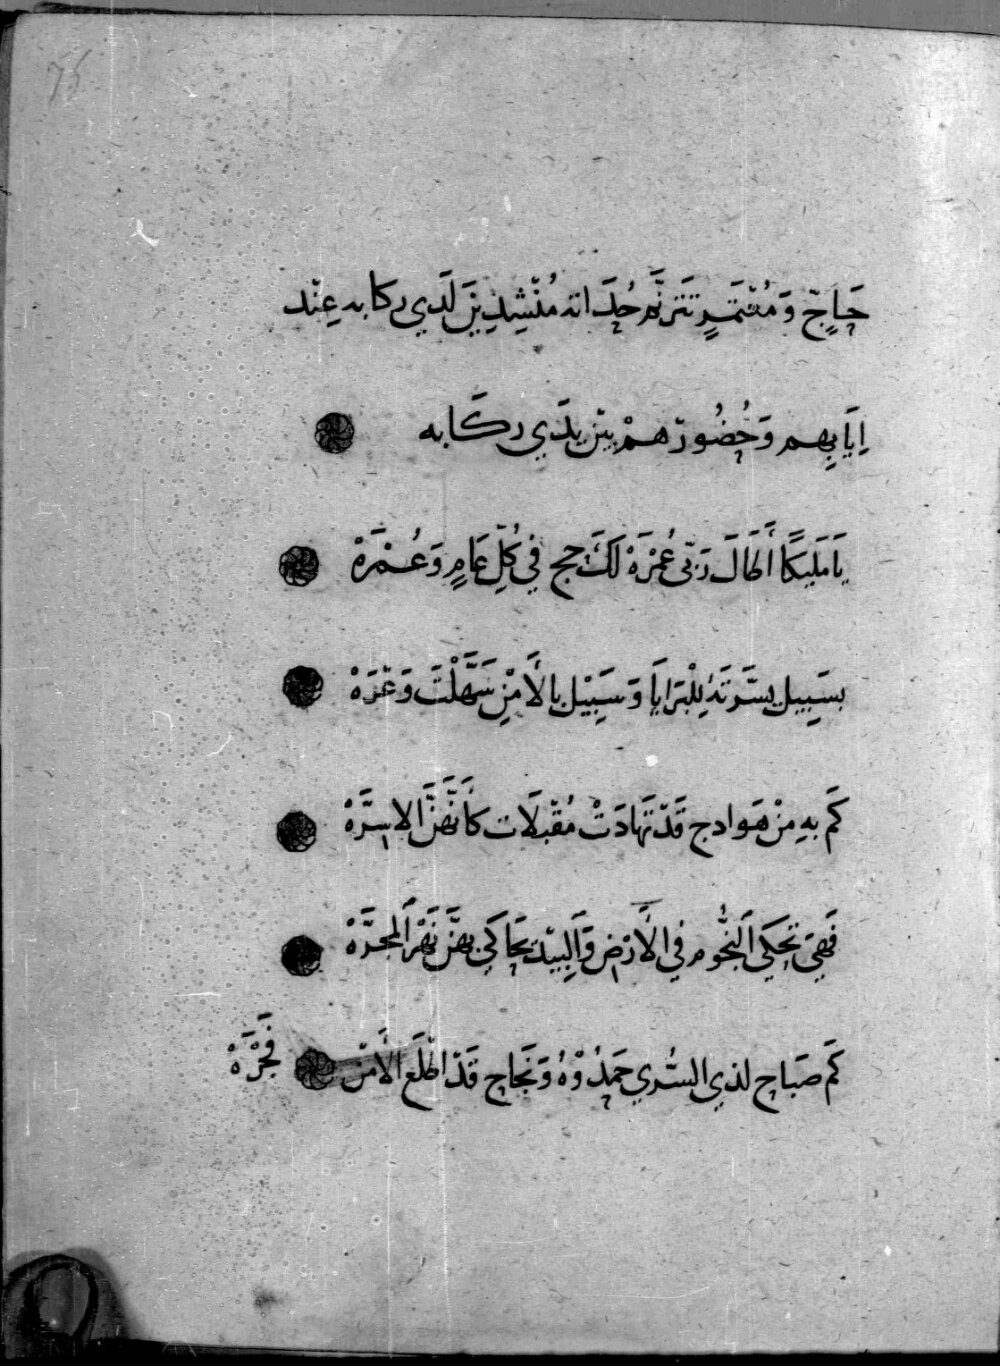 75
حَاجّ وَمُعْتَمِرٍ تَترنَّم حُدَاته مُنْشِدِينَ لَدَي ركابه عِنْد
اِيَابِهِم وَحُضُورهمْ بَيْن يَدَي ركَابه
يَا مَلِيكًا أَطَالَ رَبّى عُمْرَهْ لَكَ حج فِي كُلِّ عَامٍ وَعُمْرَهْ
بسَبِيل يسَّرتَهُ لِلْبَرَايَا وَسَبِيْل بالأَمْنِ سَهَّلْتَ وَعْرَهْ
كَم بهِ مِنْ هَوَادج قَدْ تَهَادَتْ مُقْبلَات كأَنَّهُنَّ الاسِرَّهْ
فَهِيَ تَحْكِي اَلنُّجُوم فِي الأَرْض وَاَلبِيْد تحَاكِي بهنَّ نَهْرَ اَلمجَرَّهْ
كَم صَبَاح لذي السُّري حَمِدُوْهُ وَنَجَاح قَدْ اطْلَعَ الأَمْن فَجْرَهْ